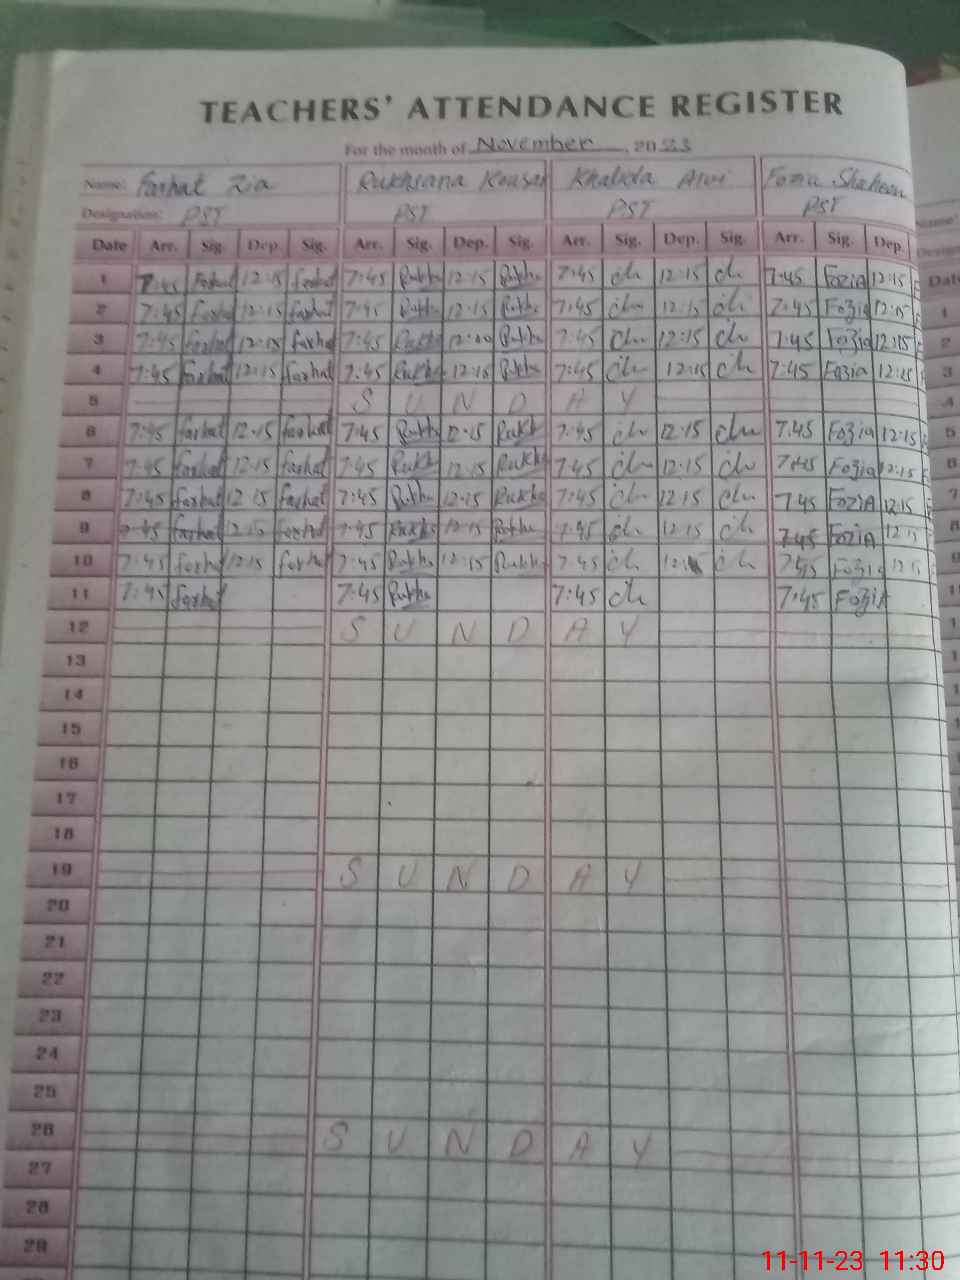 TEACHERS' ATTENDANCE REGISTER
For the month of November, 2023
Name: Farhat Zia Rukhsana Kousar Khalida Alvi Fozia Shaheen
Designation: PST PST PST PST
Date Arr. Sig. Dep. Sig. Arr. Sig. Dep. Sig. Arr. Sig. Dep. Sig. Arr. Sig. Dep.
1 7:45 Farhat 12:15 farhat 7:45 Rukhs 12:15 Rukhs 7:45 ch 12:15 ch 7:45 FoziA 12:15
2 7:45 Farhat 12:15 farhat 7:45 Rukhs 12:15 Rukhs 7:45 ch 12:15 ch 7:45 Fozia 12:15
3 7:45 farhat 12:15 farhat 7:45 Rukhs 12:20 Rukhs 7:45 ch 12:15 ch 7:45 Fozia 12:15
4 7:45 farhat 12:15 farhat 7:45 Rukhs 12:15 Rukhs 7:45 ch 12:15 ch 7:45 Fozia 12:15
5 S U N D A Y
6 7:45 farhat 12:15 farhat 7:45 Rukhs 12:15 Rukhs 7:45 ch 12:15 ch 7:45 Fozia 12:15
7 7:45 farhat 12:15 farhat 7:45 Rukhs 12:15 Rukhs 7:45 ch 12:15 ch 7:45 Fozia 12:15
8 7:45 farhat 12:15 farhat 7:45 Rukhs 12:15 Rukhs 7:45 ch 12:15 ch 7:45 FoziA 12:15
9 7:45 farhat 12:15 farhat 7:45 Rukhs 12:15 Rukhs 7:45 ch 12:15 ch 7:45 FoziA 12:15
10 7:45 farhat 12:15 farhat 7:45 Rukhs 12:15 Rukhs 7:45 ch 12:15 ch 7:45 Fozia 12:15
11 7:45 farhat 7:45 Rukhs 7:45 ch 7:45 FoziA
12 S U N D A Y
13
14
15
16
17
18
19 S U N D A Y
20
21
22
23
24
25
26 S U N D A Y
27
28
29
11-11-23 11:30